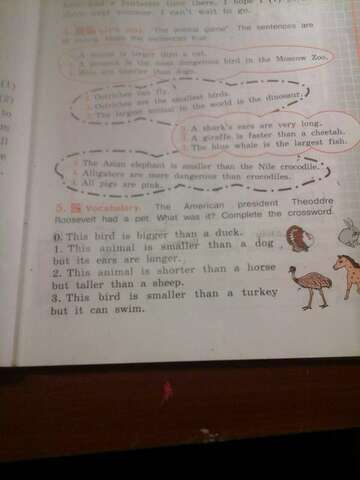 time there. I hope I
there next summer. I can't wait to go.
game" The sentences are
is larger than a cat.
is the most dangerous bird in the Moscow Zoo.
are smaller than dogs.
1. Ostriches can fly.
2. Ostriches are the smallest birds.
3. The largest animal in the world is the dinosaur.
1. A shark's ears are very long.
2. A giraffe is faster than a cheetah.
3. The blue whale is the largest fish.
The Asian elephant is smaller than the Nile crocodile.
Alligators are more dangerous than crocodiles.
All pigs are pink.
5. Vocabulary. The American president Theoddre
Roosevelt had a pet. What was it? Complete the crossword.
0. This bird is bigger than a duck.
1. This animal is smaller than a dog
but its ears are longer.
2. This animal is shorter than a horse
but taller than a sheep.
3. This bird is smaller than a turkey
but it can swim.